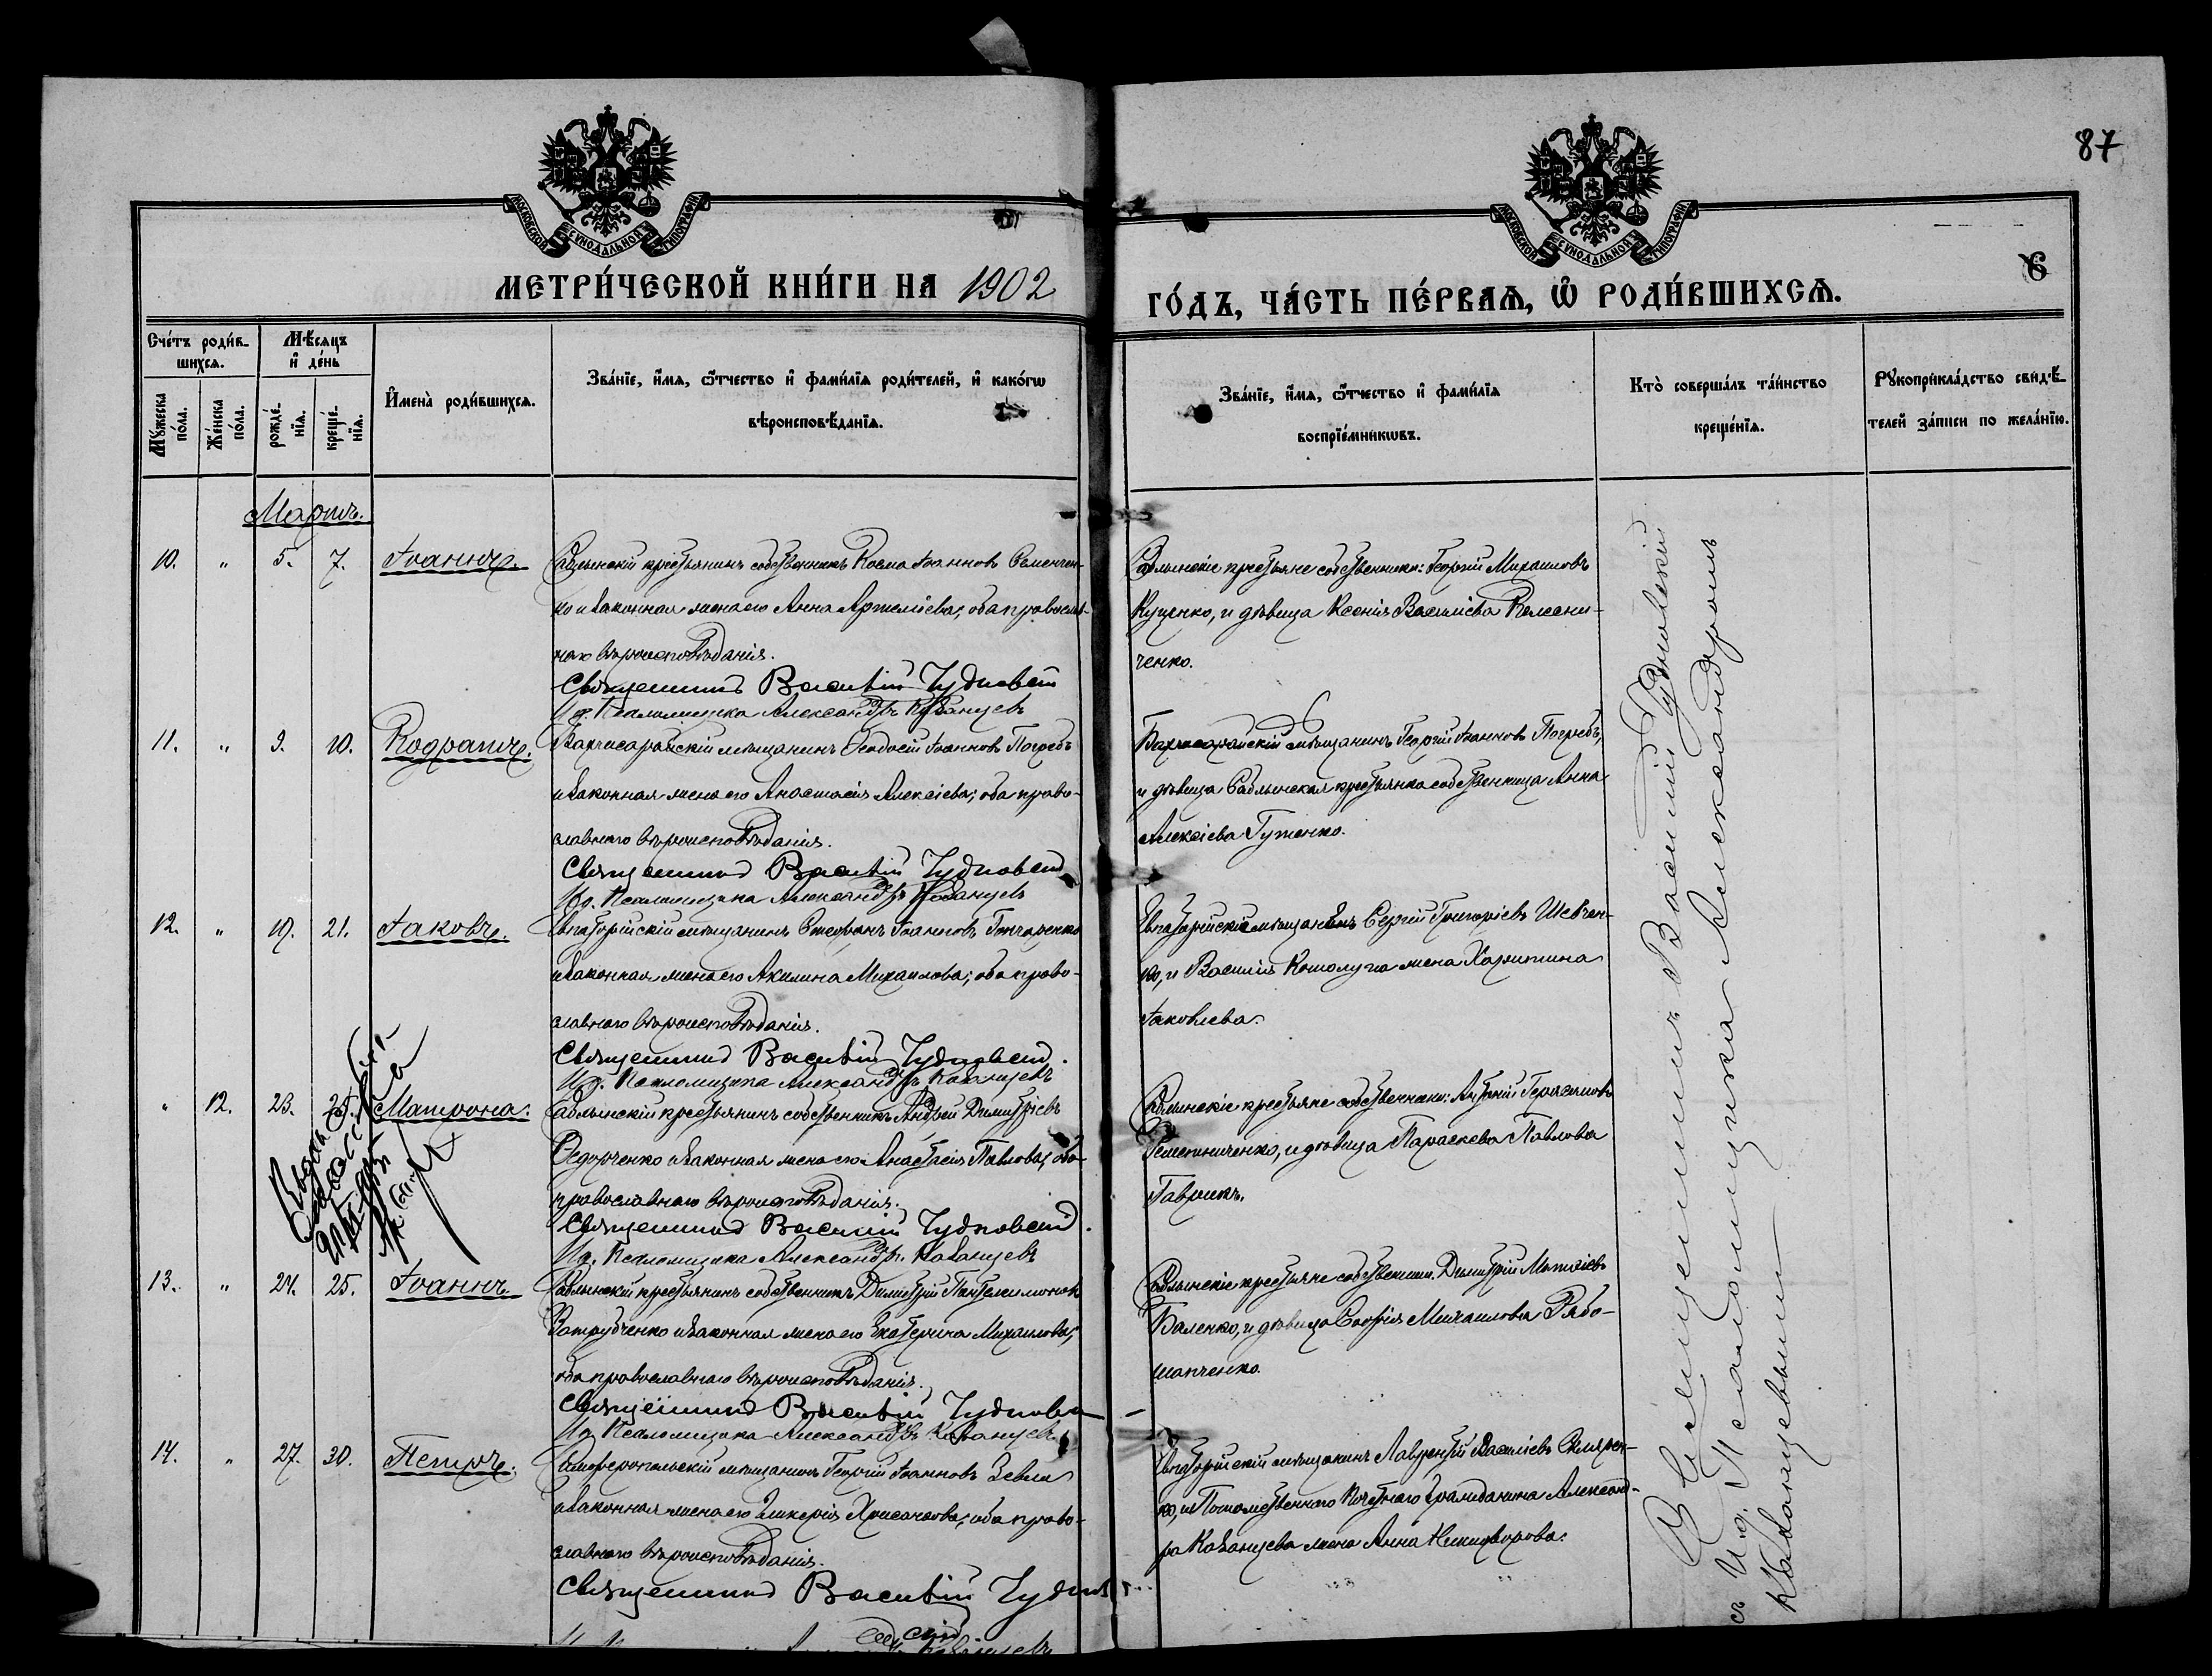 87
МОСКОВСКОЙ СѴНОДАЛЬНОЙ ТИПОГРАФІИ
МОСКОВСКОЙ СѴНОДАЛЬНОЙ ТИПОГРАФІИ
МЕТРИ́ЧЕСКОЙ КНИ́ГИ НА 1902
ГО́ДЪ, ЧА́СТЬ ПЕ́РВАѦ, Ѽ РОДИ́ВШИХСѦ.
6
Сче́тъ роди́в-
шихсѧ.
Мѣ́сѧцъ
и҆ де́нь
Мꙋ́жеска по́ла.
Же́нска по́ла.
рожде́-
нїѧ.
креще́-
нїѧ.
И҆мена̀ роди́вшихсѧ.
Зва́нїе, и҆́мѧ, ѻ҆́тчество и҆ фами́лїѧ роди́телей, и҆ како́гѡ
вѣроисповѣ́данїѧ.
Зва́нїе, и҆́мѧ, ѻ҆́тчество и҆ фами́лїѧ
воспрїе́мникѡвъ.
Кто̀ соверша́лъ та́инство
креще́нїѧ.
Рꙋкоприкла́дство свидѣ́-
телей за́писи по жела́нїю.
Мартъ.
10. " 5. 7. Іоаннъ.
Саблынскій крестьянинъ собственникъ Косма Іоанновъ Семенчен-
ко и законная жена его Анна Артеміева; оба православ-
наго вѣроисповѣданія.
Священникъ Василій Чудновскій
И.д. Псаломщика Александръ Кованцевъ
Саблынскіе крестьяне собственники: Георгій Михаиловъ
Куценко, и дѣвица Ксенія Василіева Колесни-
ченко.
11. " 9. 10. Кодратъ.
Бахчисарайскій мѣщанинъ Ѳеодосій Іоанновъ Погребъ
и законная жена его Анастасія Алексіева; оба право-
славнаго вѣроисповѣданія.
Священникъ Василій Чудновскій
И.д. Псаломщика Александръ Кованцевъ
Бахчисарайскій мѣщанинъ Георгій Іоанновъ Погребъ,
и дѣвица Саблынская крестьянка собственница Анна
Алексіева Гуженко.
12. " 19. 21. Іаковъ.
Евпаторійскій мѣщанинъ Стефанъ Іоанновъ Гончаренко
и законная жена его Акилина Михаилова; оба право-
славнаго вѣроисповѣданія.
Священникъ Василій Чудновскій.
И.д. Псаломщика Александръ Кованцевъ
Евпаторійскій мѣщанинъ Сергій Григоріевъ Шевчен-
ко, и Василія Кошолупа жена Харитина
Іаковлева.
" 12. 23. 25. Матрона.
Саблынскій крестьянинъ собственникъ Андрей Димитріевъ
Ѳедорченко и законная жена его Анастасія Павлова; оба
православнаго вѣроисповѣданія.
Священникъ Василій Чудновскій.
И.д. Псаломщика Александръ Кованцевъ
Саблынскіе крестьяне собственники: Антоній Герасимовъ
и дѣвица Параскева Павлова
Гаврикъ.
13. " 24. 25. Іоаннъ.
Саблынскій крестьянинъ собственникъ Димитрій Пантелеимоновъ
и законная жена его Екатерина Михаилова;
оба православнаго вѣроисповѣданія.
Священникъ Василій Чудновскій
И.д. Псаломщика Александръ Кованцевъ
Саблынскіе крестьяне собственники: Димитрій Матѳіевъ
Баленко, и дѣвица Софія Михаилова Рябо-
шапченко.
14. " 27. 30. Петръ.
Симферопольскій мѣщанинъ Георгій Іоанновъ Зевли
и законная жена его Гликерія Хрисанѳова; оба право-
славнаго вѣроисповѣданія.
Священникъ Василій Чудновскій
Евпаторійскій мѣщанинъ Лаврентій Василіевъ Склярен-
ко, и Потомственнаго Почетнаго Гражданина Александ-
ра Кованцева жена Анна Никифорова.
Священникъ Василій Чудновскій
съ И.д. Псаломщика Александромъ
Кованцевымъ